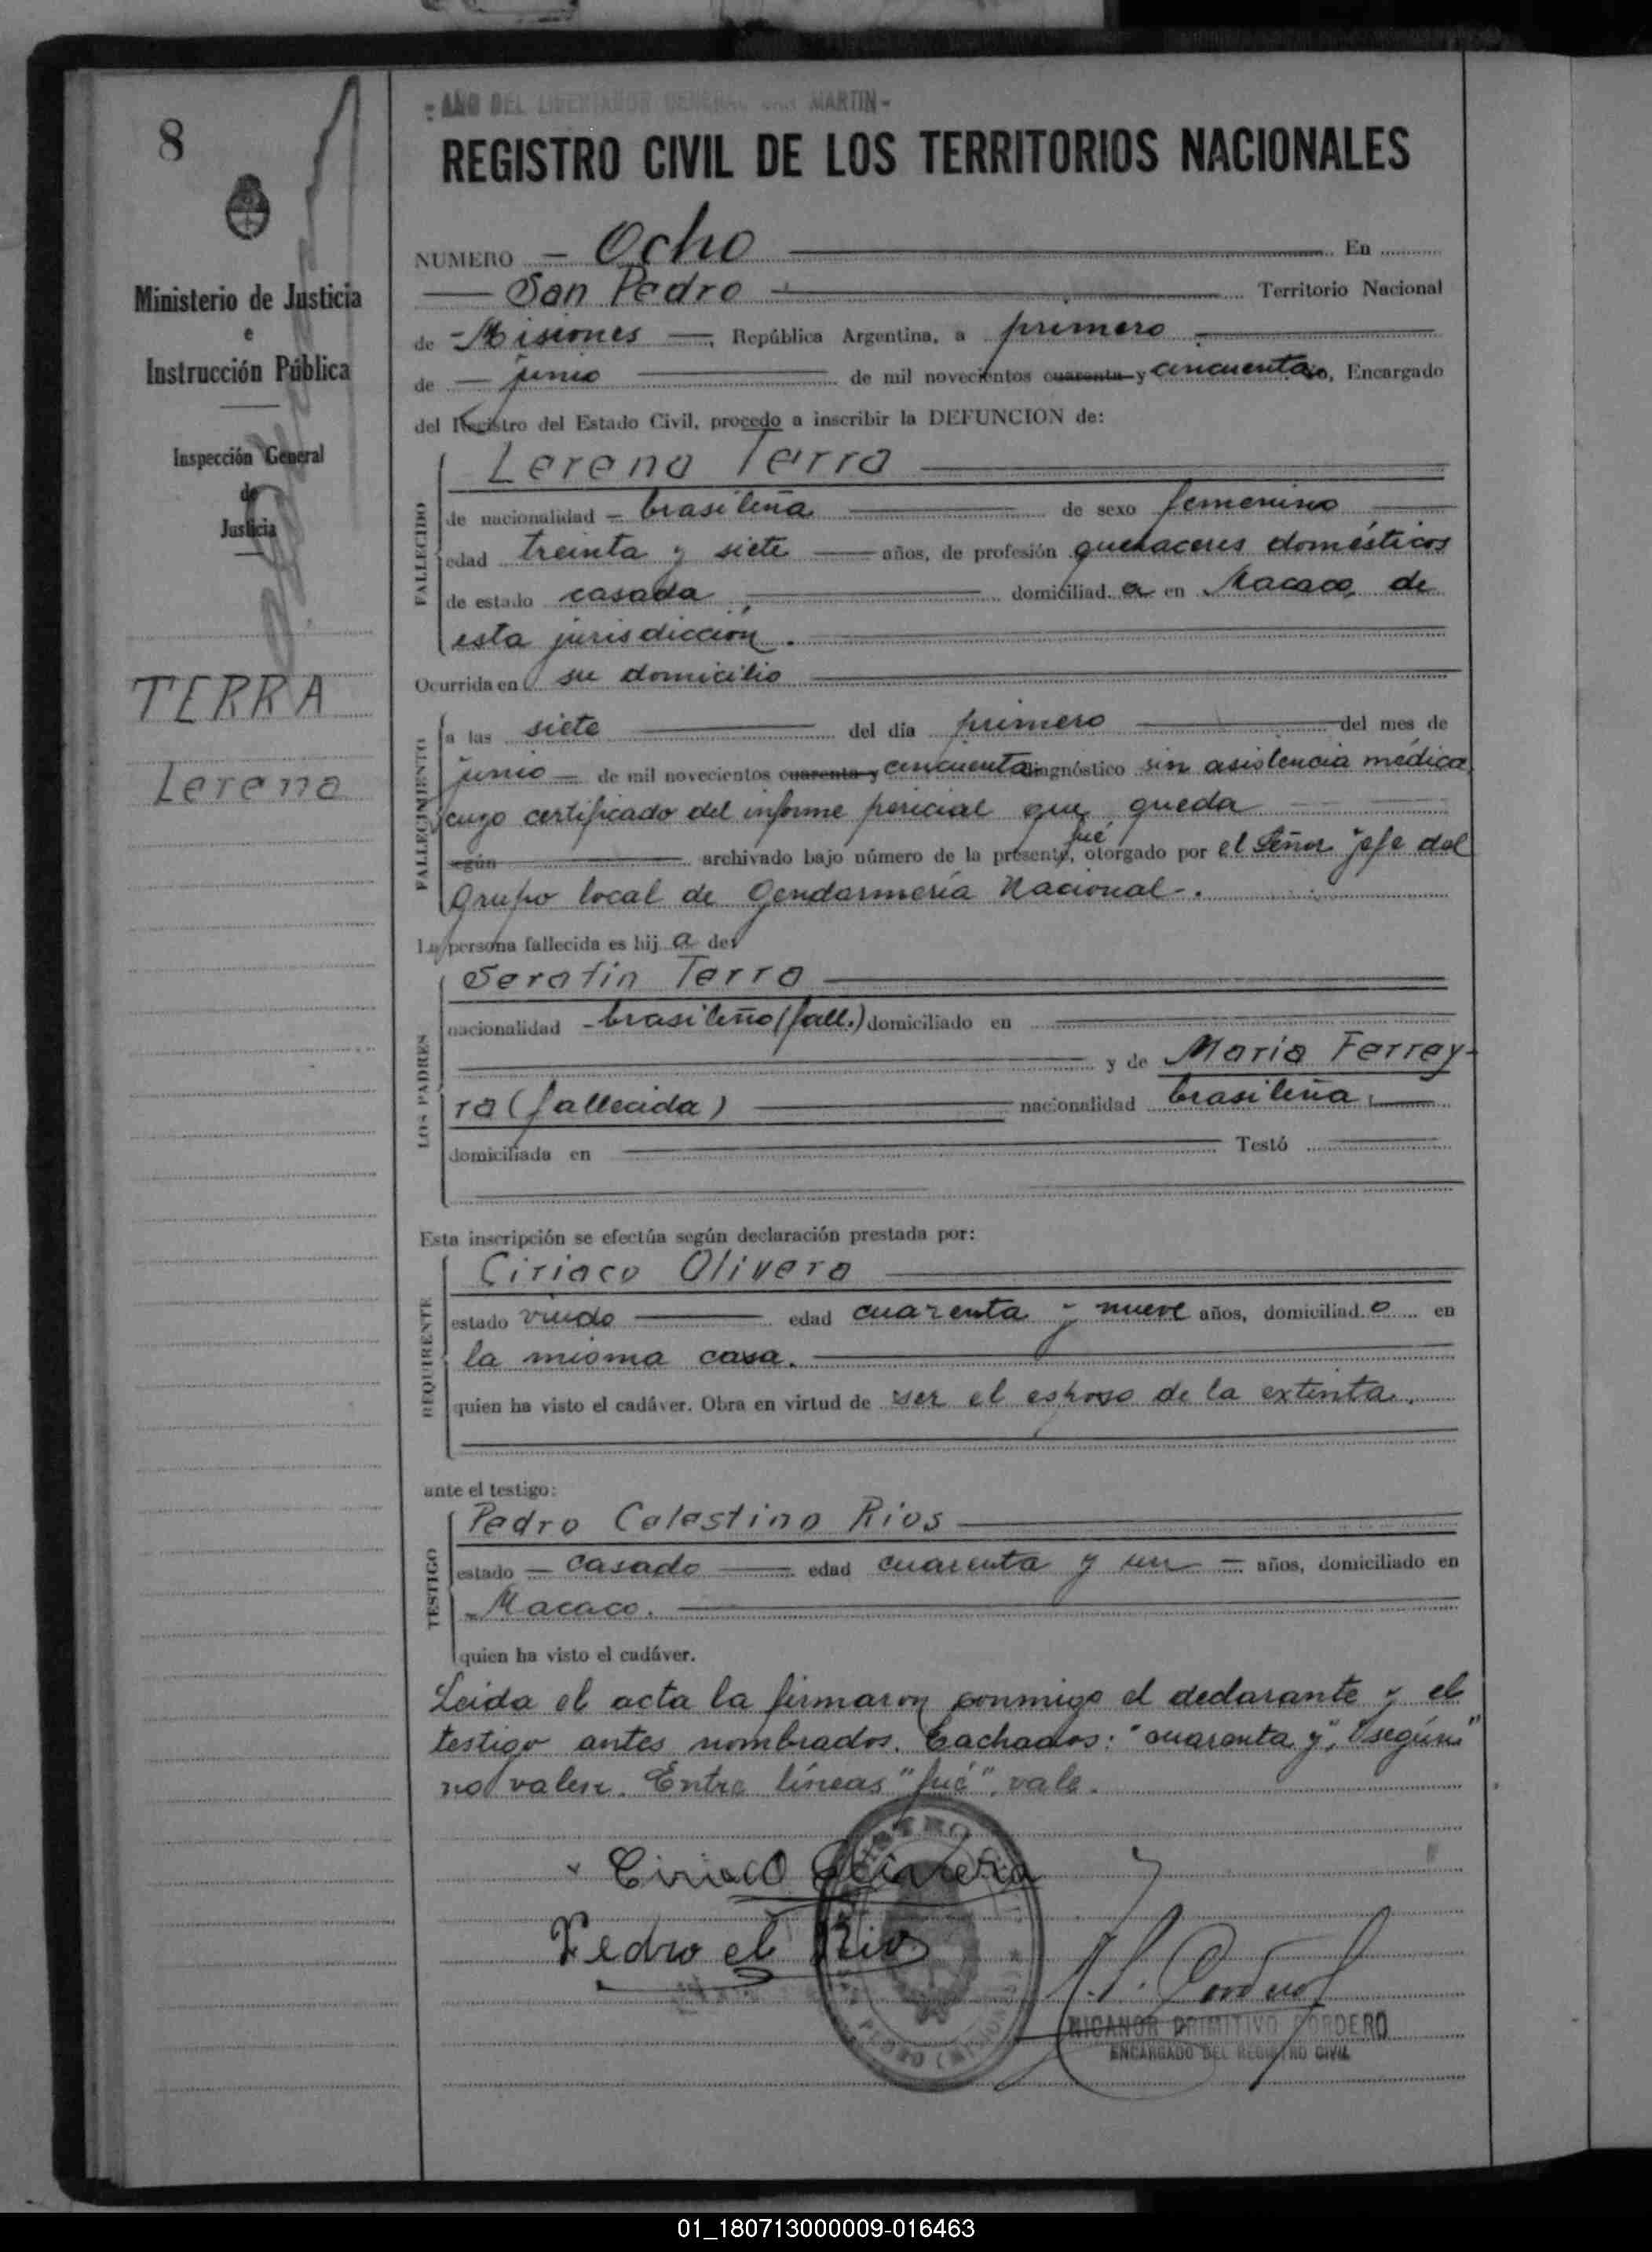 - AÑO DEL LIBERTADOR GENERAL SAN MARTIN -
8
REGISTRO CIVIL DE LOS TERRITORIOS NACIONALES
NUMERO - Ocho En
San Pedro Territorio Nacional
Ministerio de Justicia
e
Instrucción Pública
de - Misiones, República Argentina, a primero
de junio de mil novecientos cuarenta y cincuenta yo, Encargado
del Registro del Estado Civil, procedo a inscribir la DEFUNCION de:
Inspección General
de
Justicia
FALLECIDO
Lerena Terra
de nacionalidad - brasileña de sexo femenino
edad treinta y siete años, de profesión quehaceres domésticos
de estado casada domiciliad a en Macaco, de
esta jurisdicción.
TERRA
Lerena
Ocurrida en su domicilio
FALLECIMIENTO
a las siete del día primero del mes de
junio - de mil novecientos cuarenta y cincuenta diagnóstico sin asistencia médica
cuyo certificado del informe pericial que queda
según archivado bajo número de la presente, fué otorgado por el Señor jefe del
Grupo local de Gendarmería Nacional-.
La persona fallecida es hij a de:
LOS PADRES
Serafin Terra
nacionalidad - brasileño (fall.) domiciliado en
y de Maria Ferrey-
ra (fallecida) nacionalidad brasileña
domiciliada en Testó
Esta inscripción se efectúa según declaración prestada por:
REQUIRENTE
Ciriaco Olivera
estado viudo edad cuarenta y nueve años, domiciliad o en
la misma casa.
quien ha visto el cadáver. Obra en virtud de ser el esposo de la extinta.
ante el testigo:
TESTIGO
Pedro Celestino Rios
estado - casado edad cuarenta y un - años, domiciliado en
- Macaco.
quien ha visto el cadáver.
Leida el acta la firmaron conmigo el declarante y el
testigo antes nombrados. Tachados: "cuarenta y", "según"
no valen. Entre líneas "fué", vale.
Ciriaco Olivera
Pedro el Rios
N. P. Cordero
NICANOR PRIMITIVO CORDERO
ENCARGADO DEL REGISTRO CIVIL
01_180713000009-016463